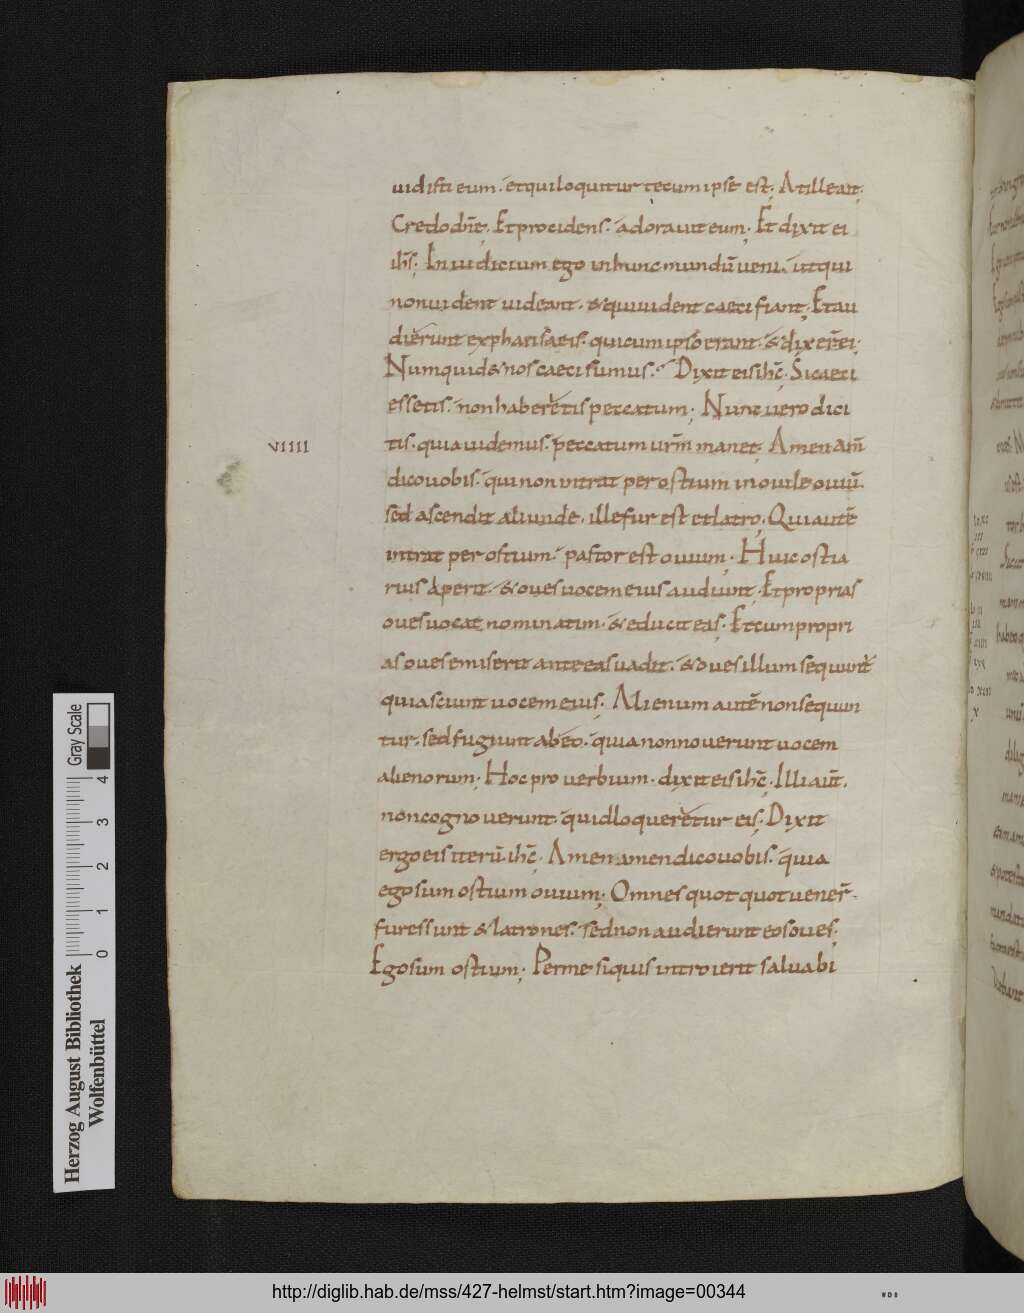 uidisti eum· et qui loquitur tecum ipse est; At ille ait;
Credo dñe; Et procidens· adorauit eum; Et dixit ei
ihs̄; In iudicium ego in hunc mundū ueni· ut qui
non uident uideant· & qui uident caeci fiant; Et au
dierunt ex pharisaeis· qui cum ipso erant· & dixer̄ ei;
Numquid & nos caeci sumus· Dixit eis ihc̄; Si caeci
essetis· non haberetis peccatum; Nunc uero dici
VIIII
tis· quia uidemus· peccatum ur̄m manet; Amen am̄
dico uobis· qui non intrat per ostium in ouile ouiū·
sed ascendit aliunde· ille fur est et latro; Qui autē
intrat per ostium· pastor est ouium; Huic ostia
rius aperit· & oues uocem eius audiunt· Et proprias
oues uocat nominatim· & educit eas; Et cum propri
as oues emiserit ante eas uadit· & oues illum sequunt̄
quia sciunt uocem eius; Alienum autē non sequun
tur· sed fugiunt ab eo· quia non nouerunt uocem
alienorum; Hoc prouerbium· dixit eis ihc̄; Illi aut̄·
non cognouerunt· quid loqueretur eis; Dixit
ergo eis iterū ihc̄· Amen amen dico uobis· quia
ego sum ostium ouium; Omnes quot quot uener̄·
fures sunt & latrones· sed non audierunt eos oues;
Ego sum ostium; Per me si quis introierit saluabi
Herzog August Bibliothek
Wolfenbüttel
Gray Scale
0 1 2 3 4
http://diglib.hab.de/mss/427-helmst/start.htm?image=00344